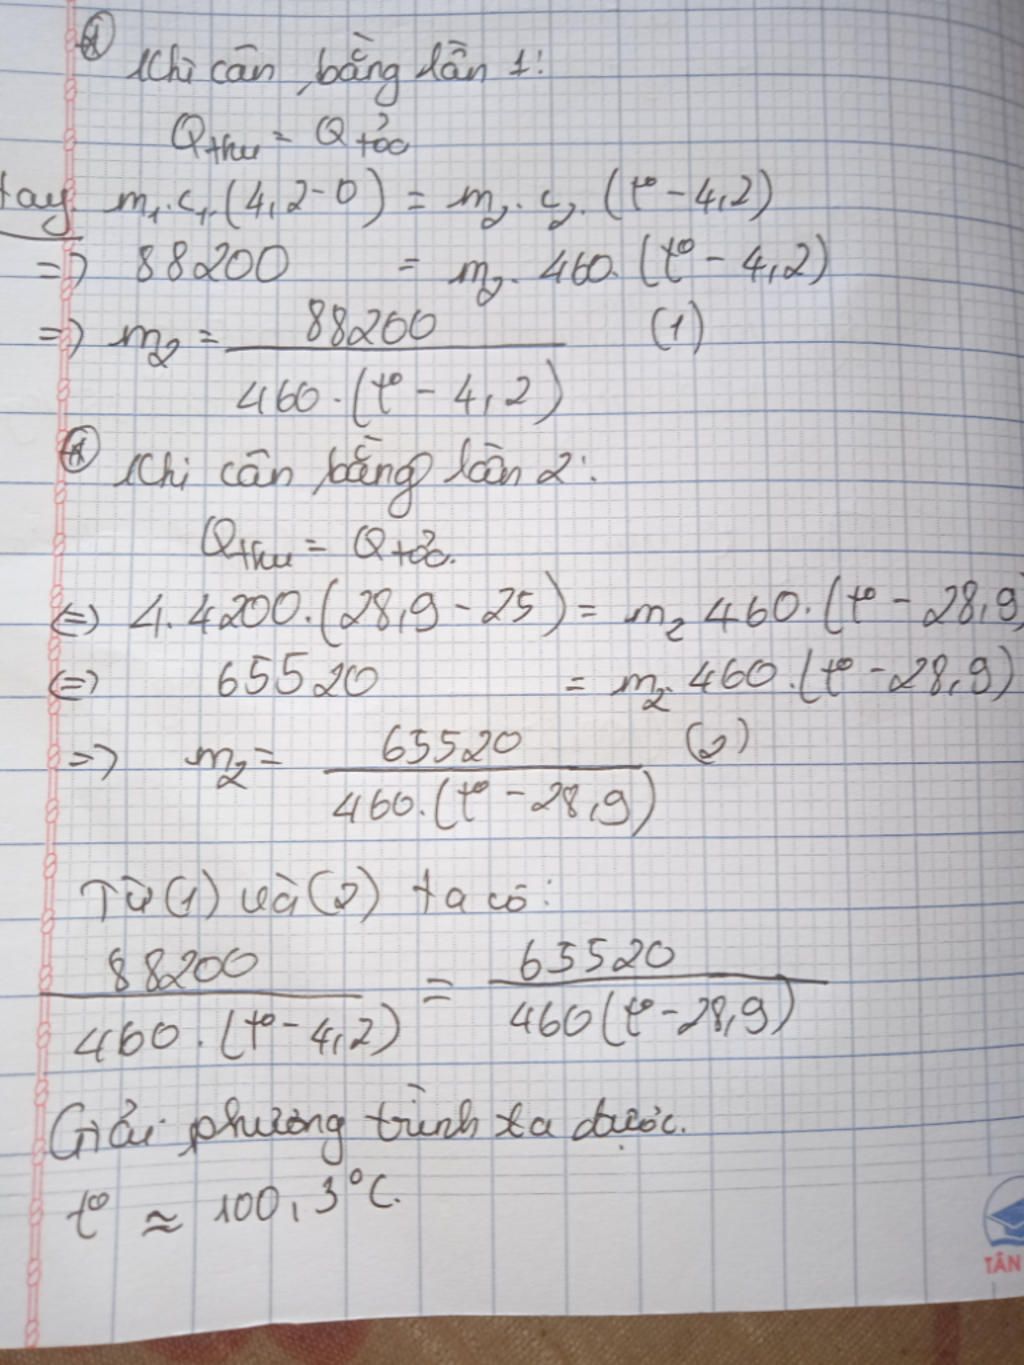 Khi cân bằng lần 1:
Qthu = Qtỏa
tay m₁.c₁.(4,2-0) = m₂.c₂.(t° - 4,2)
=> 88200 = m₂. 460. (t° - 4,2)
=> m₂ = 88200 / 460.(t° - 4,2) (1)
Khi cân bằng lần 2:
Qthu = Qtỏa.
<=> 4.4200.(28,9 - 25) = m₂ 460.(t° - 28,9)
<=> 65520 = m₂.460.(t° - 28,9)
=> m₂ = 65520 / 460.(t° - 28,9) (2)
Từ (1) và (2) ta có:
88200 / 460.(t° - 4,2) = 65520 / 460(t° - 28,9)
Giải phương trình ta được.
t° ≈ 100,3°C.
TÂN